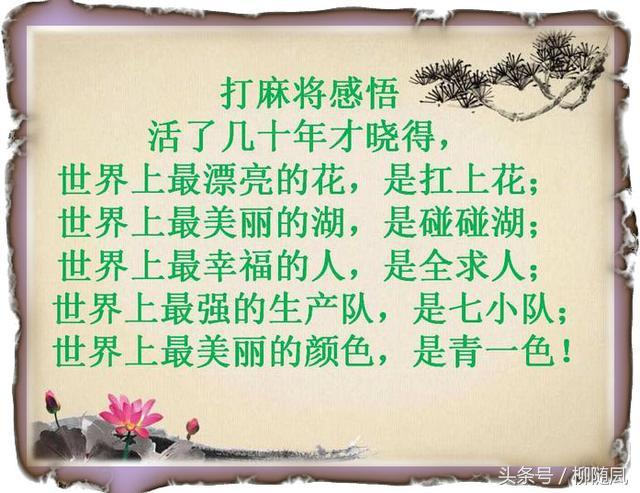 打麻将感悟
活了几十年才晓得，
世界上最漂亮的花，是扛上花；
世界上最美丽的湖，是碰碰湖；
世界上最幸福的人，是全求人；
世界上最强的生产队，是七小队；
世界上最美丽的颜色，是青一色！
头条号／柳随风